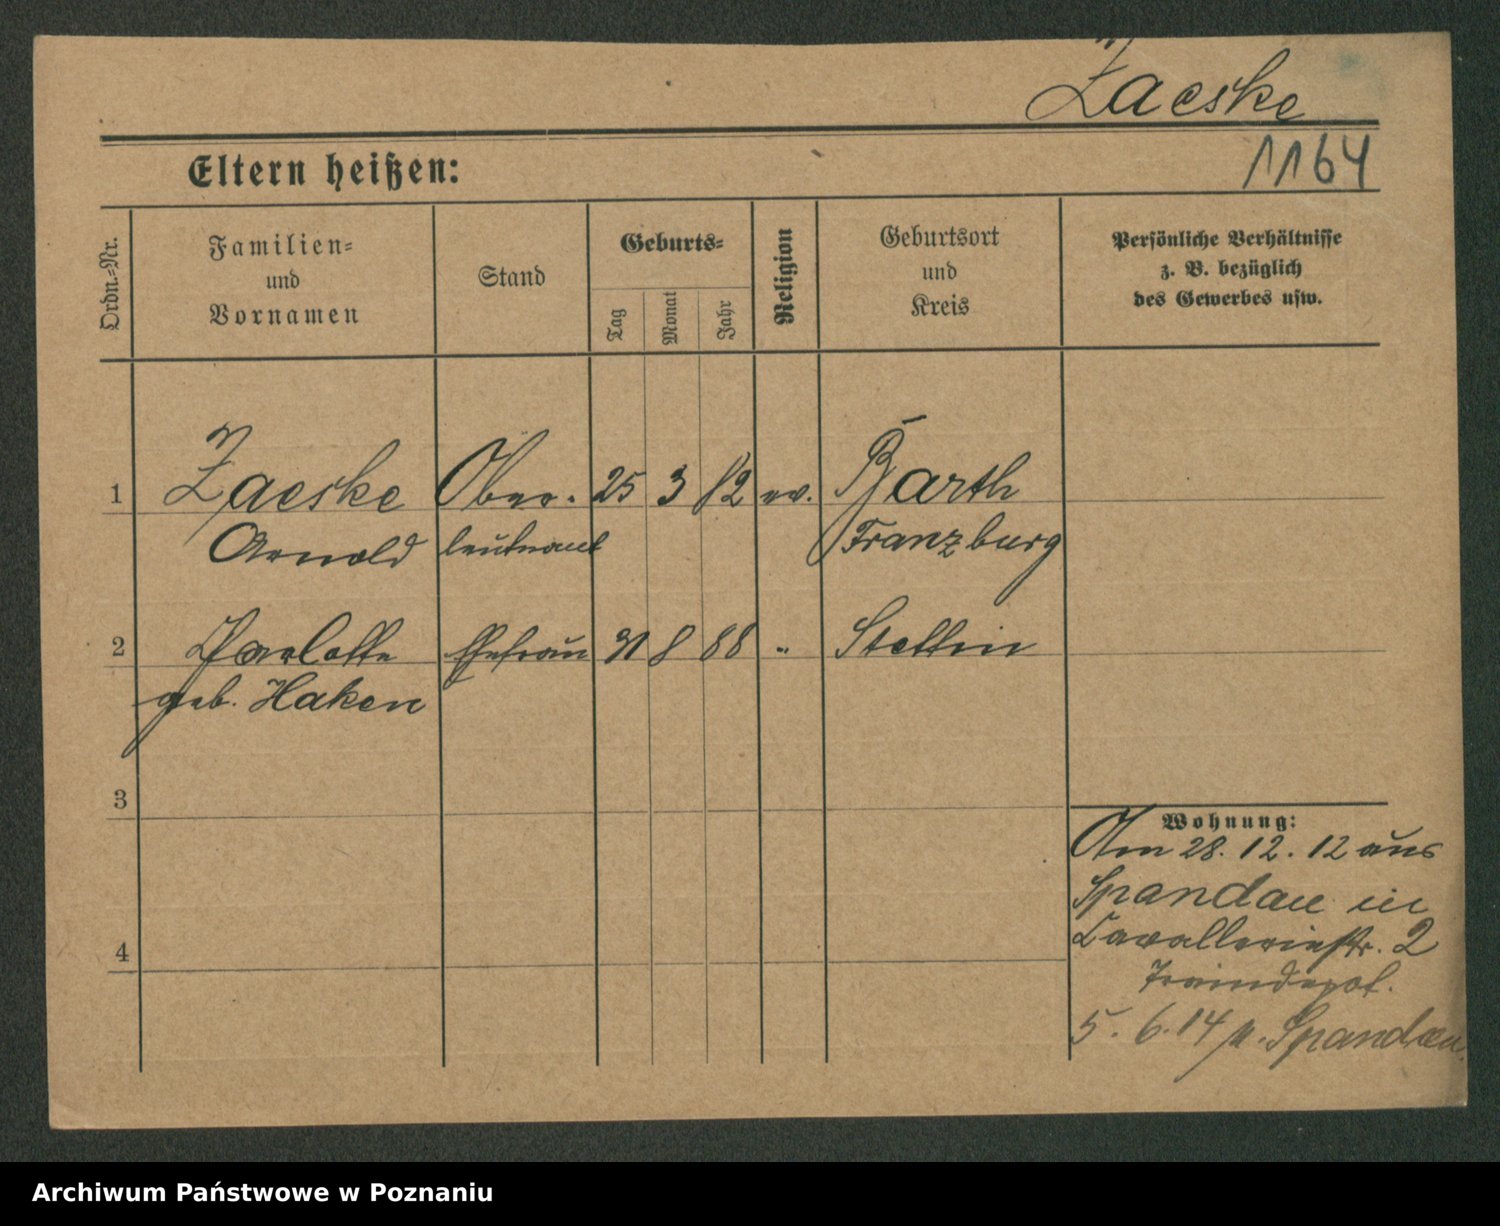 Zaeske
1164
Eltern heißen:
Ordn.=Nr.
Familien=
und
Vornamen
Stand
Geburts=
Tag
Monat
Jahr
Religion
Geburtsort
und
Kreis
Persönliche Verhältnisse
z. B. bezüglich
des Gewerbes usw.
1 Zaeske Ober- 25 3 82 ev. Barth
Arnold leutnant Franzburg
2 Charlotte Ehefrau 31 8 88 " Stettin
geb. Haken
3
4
Wohnung:
Am 28. 12. 12 aus
Spandau in
Cavalleriestr. 2
Traindepot.
5. 6. 14 n. Spandau.
Archiwum Państwowe w Poznaniu